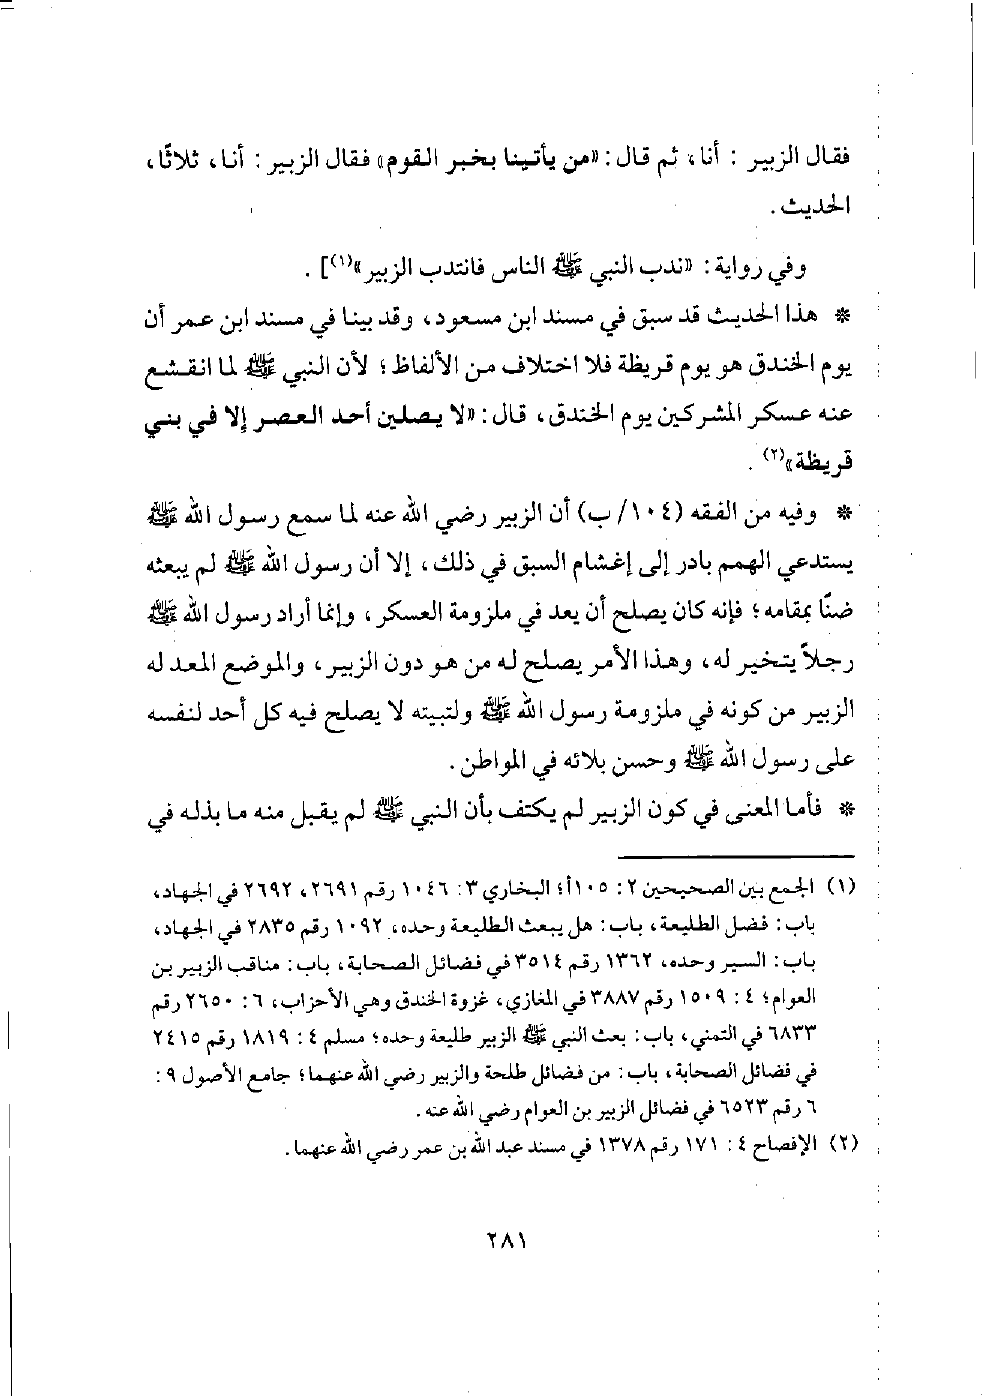 فقال الزبير : أنا، ثم قال : «من يأتينا بخبر القوم» فقال الزبير : أنا، ثلاثًا،
الحديث .
وفي رواية : «ندب النبي ﷺ الناس فانتدب الزبير»(١)] .
* هذا الحديث قد سبق في مسند ابن مسعود، وقد بينا في مسند ابن عمر أن
يوم الخندق هو يوم قريظة فلا اختلاف من الألفاظ؛ لأن النبي ﷺ لما انقشع
عنه عسكر المشركين يوم الخندق، قال : «لا يصلين أحد العصر إلا في بني
قريظة»(٢) .
* وفيه من الفقه (١٠٤/ ب) أن الزبير رضي الله عنه لما سمع رسول الله ﷺ
يستدعي الهمم بادر إلى إغشام السبق في ذلك، إلا أن رسول الله ﷺ لم يبعثه
ضنًا بمقامه؛ فإنه كان يصلح أن يعد في ملزومة العسكر، وإنما أراد رسول الله ﷺ
رجلاً يتخير له، وهذا الأمر يصلح له من هو دون الزبير، والموضع المعد له
الزبير من كونه في ملزومة رسول الله ﷺ ولتبيته لا يصلح فيه كل أحد لنفسه
على رسول الله ﷺ وحسن بلائه في المواطن .
* فأما المعنى في كون الزبير لم يكتف بأن النبي ﷺ لم يقبل منه ما بذله في
(١) الجمع بين الصحيحين ٢ : ١٠٥أ؛ البخاري ٣ : ١٠٤٦ رقم ٢٦٩١، ٢٦٩٢ في الجهاد،
باب : فضل الطليعة، باب : هل يبعث الطليعة وحده، ١٠٩٢ رقم ٢٨٣٥ في الجهاد،
باب : السير وحده، ١٣٦٢ رقم ٣٥١٤ في فضائل الصحابة، باب : مناقب الزبير بن
العوام؛ ٤ : ١٥٠٩ رقم ٣٨٨٧ في المغازي، غزوة الخندق وهي الأحزاب، ٦ : ٢٦٥٠ رقم
٦٨٣٣ في التمني، باب : بعث النبي ﷺ الزبير طليعة وحده؛ مسلم ٤ : ١٨١٩ رقم ٢٤١٥
في فضائل الصحابة، باب : من فضائل طلحة والزبير رضي الله عنهما؛ جامع الأصول ٩ :
٦ رقم ٦٥٢٣ في فضائل الزبير بن العوام رضي الله عنه .
(٢) الإفصاح ٤ : ١٧١ رقم ١٣٧٨ في مسند عبد الله بن عمر رضي الله عنهما .
٢٨١